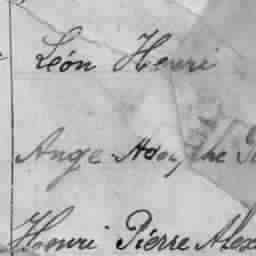 Léon Henri
Ange
Henri Pierre Alex